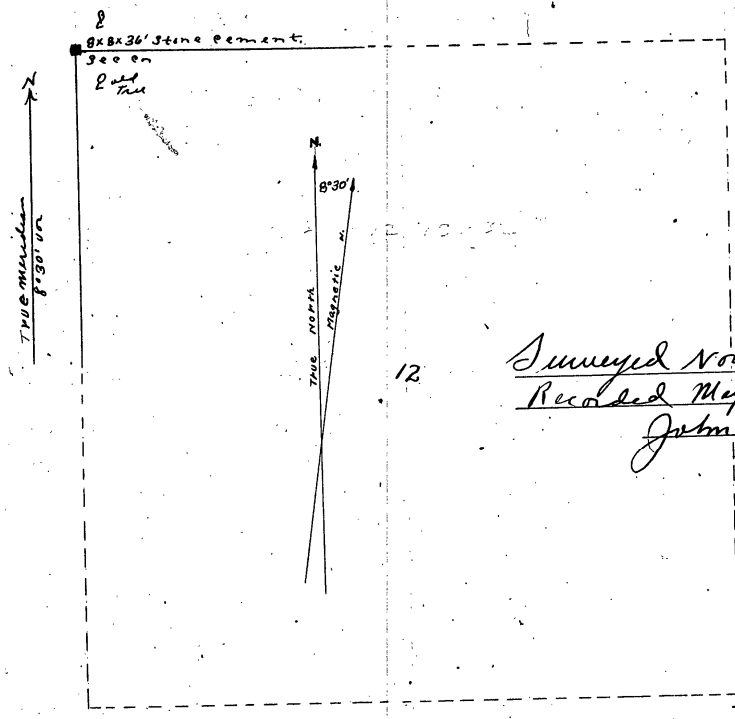 8x8x36" Stone cement.
Sec Cn
old
N
True Meridian
8°30' Var
N.
8°30'
True North
Magnetic N.
12
Surveyed Nov
Recorded May
John